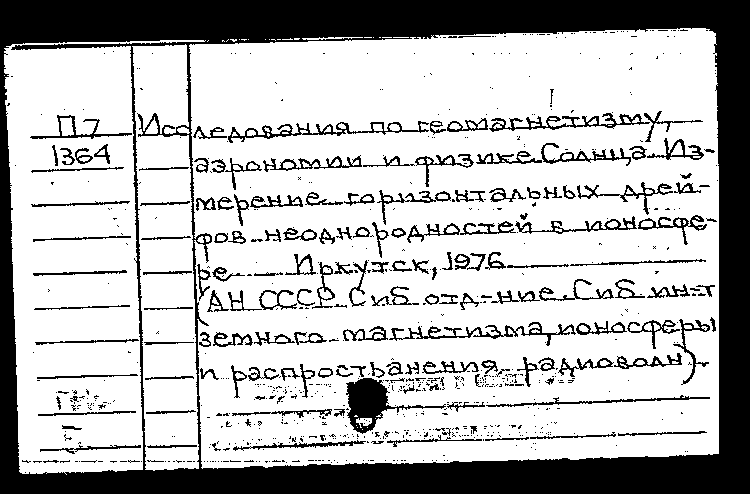 П7 Исследования по геомагнетизму,
1364 аэрономии и физике Солнца. Из-
мерение горизонтальных дрей-
фов неоднородностей в ионосфе-
ре Иркутск, 1976
(АН СССР. Сиб отд-ние. Сиб ин-т
земного магнетизма, ионосферы
и распространения радиоволн).